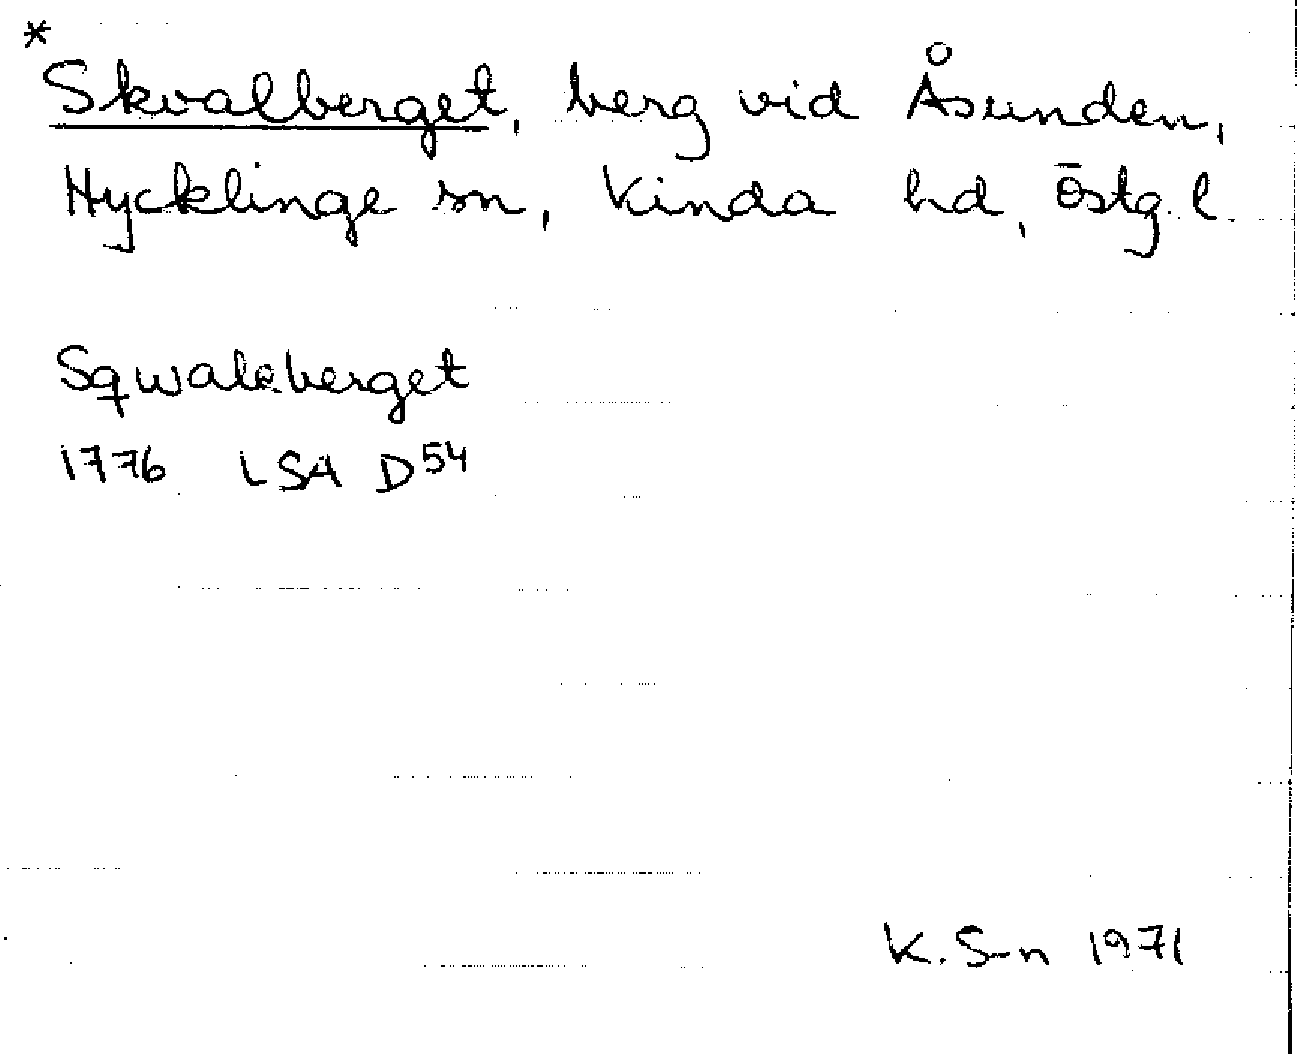 *
Skvalberget, berg vid Åsunden,
Hycklinge sn, Kinda hd, Östg. l.
Sqwaleberget
1776 LSA D54
K. S-n 1971